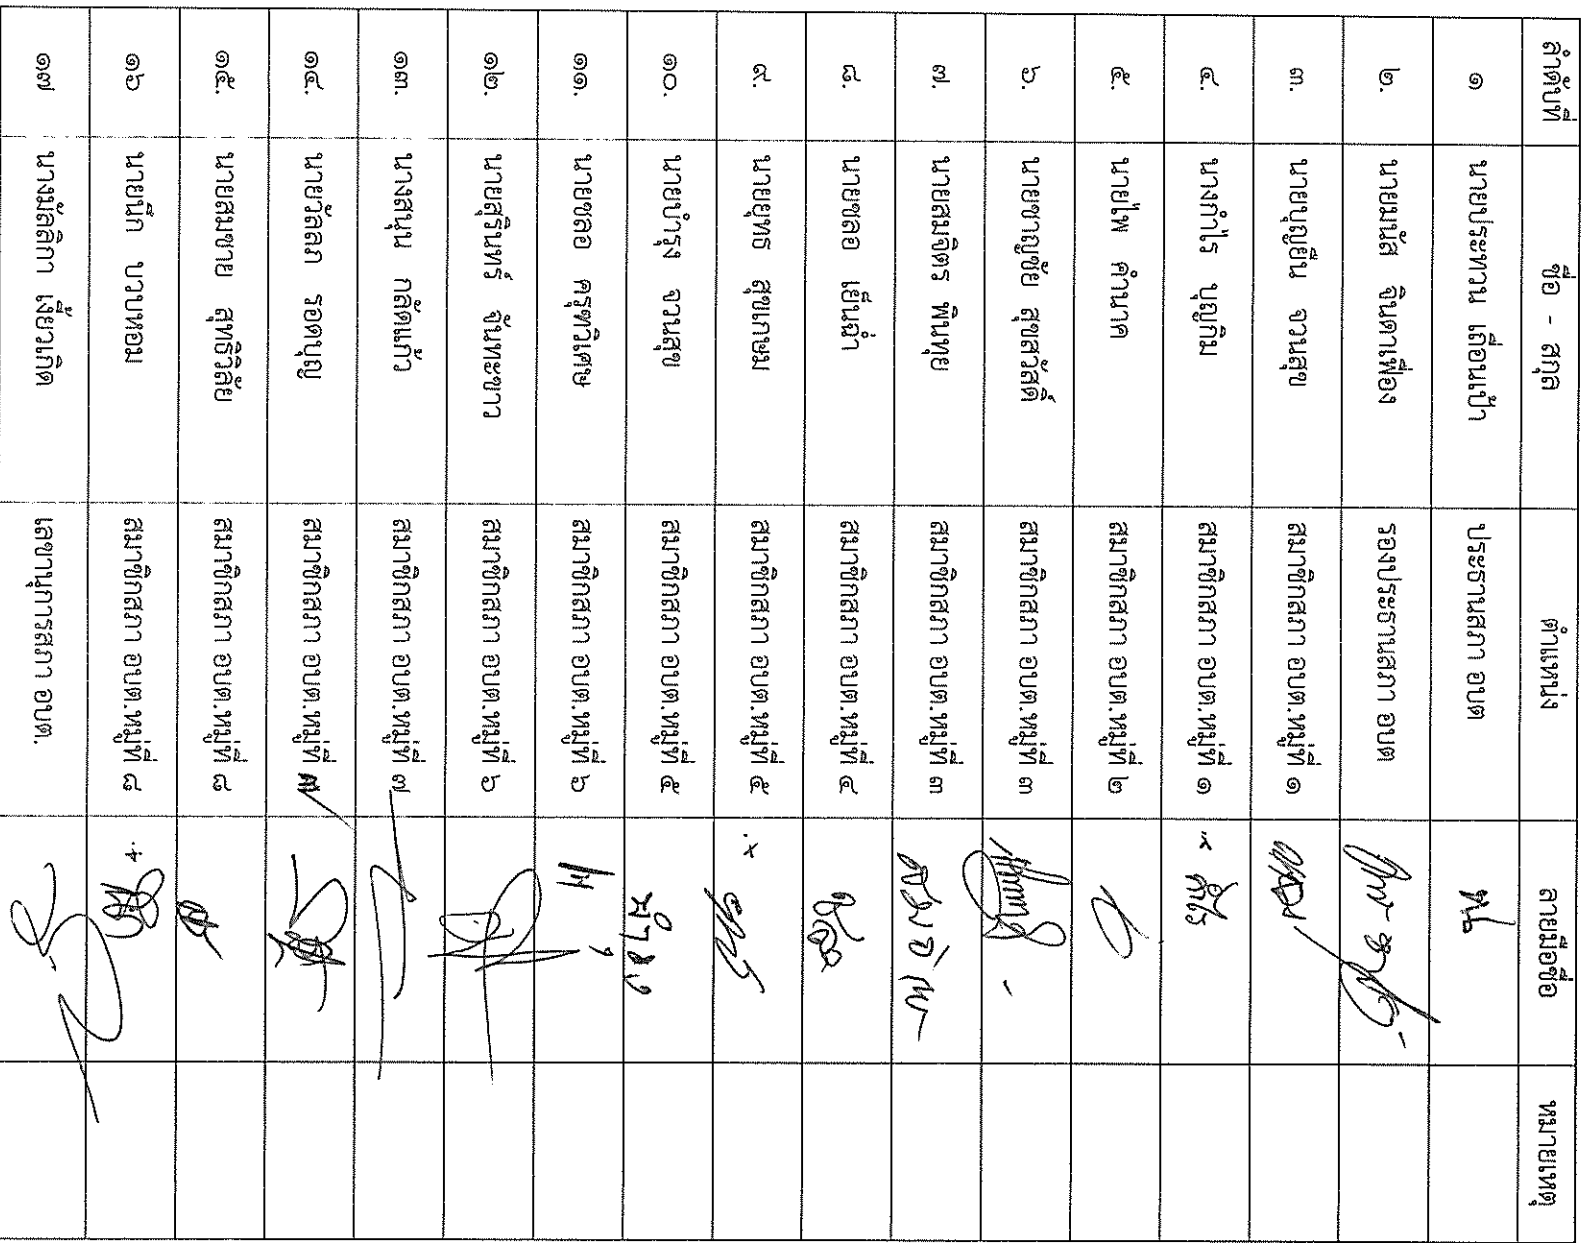 ลำดับที่ ชื่อ - สกุล ตำแหน่ง ลายมือชื่อ หมายเหตุ
๑ นายประทาน เถื่อนเป้า ประธานสภา อบต
๒. นายมนัส จินดาเฟื่อง รองประธานสภา อบต
๓. นายบุญยืน จวนสุข สมาชิกสภา อบต.หมู่ที่ ๑
๔. นางกำไร บุญกิม สมาชิกสภา อบต.หมู่ที่ ๑
๕. นายไพ คำนาค สมาชิกสภา อบต.หมู่ที่ ๒
๖. นายชาญชัย สุขสวัสดิ์ สมาชิกสภา อบต.หมู่ที่ ๓
๗. นายสมจิตร พินทุย สมาชิกสภา อบต.หมู่ที่ ๓ สมจิตร
๘. นายชลอ เย็นฉ่ำ สมาชิกสภา อบต.หมู่ที่ ๔ ชลอ
๙. นายยุทธ สุขเกษม สมาชิกสภา อบต.หมู่ที่ ๕
๑๐. นายบำรุง จวนสุข สมาชิกสภา อบต.หมู่ที่ ๕
๑๑. นายชลอ ครุฑวิเศษ สมาชิกสภา อบต.หมู่ที่ ๖
๑๒. นายสุรินทร์ จันทะขาว สมาชิกสภา อบต.หมู่ที่ ๖
๑๓. นางสนุน กลัดแก้ว สมาชิกสภา อบต.หมู่ที่ ๗
๑๔. นายวัลลภ รอดบุญ สมาชิกสภา อบต.หมู่ที่ ๗
๑๕. นายสมชาย สุทธิวิลัย สมาชิกสภา อบต.หมู่ที่ ๘
๑๖ นายนึก บวบหอม สมาชิกสภา อบต.หมู่ที่ ๘
๑๗ นางมัลลิกา เงี้ยวเกิด เลขานุการสภา อบต.